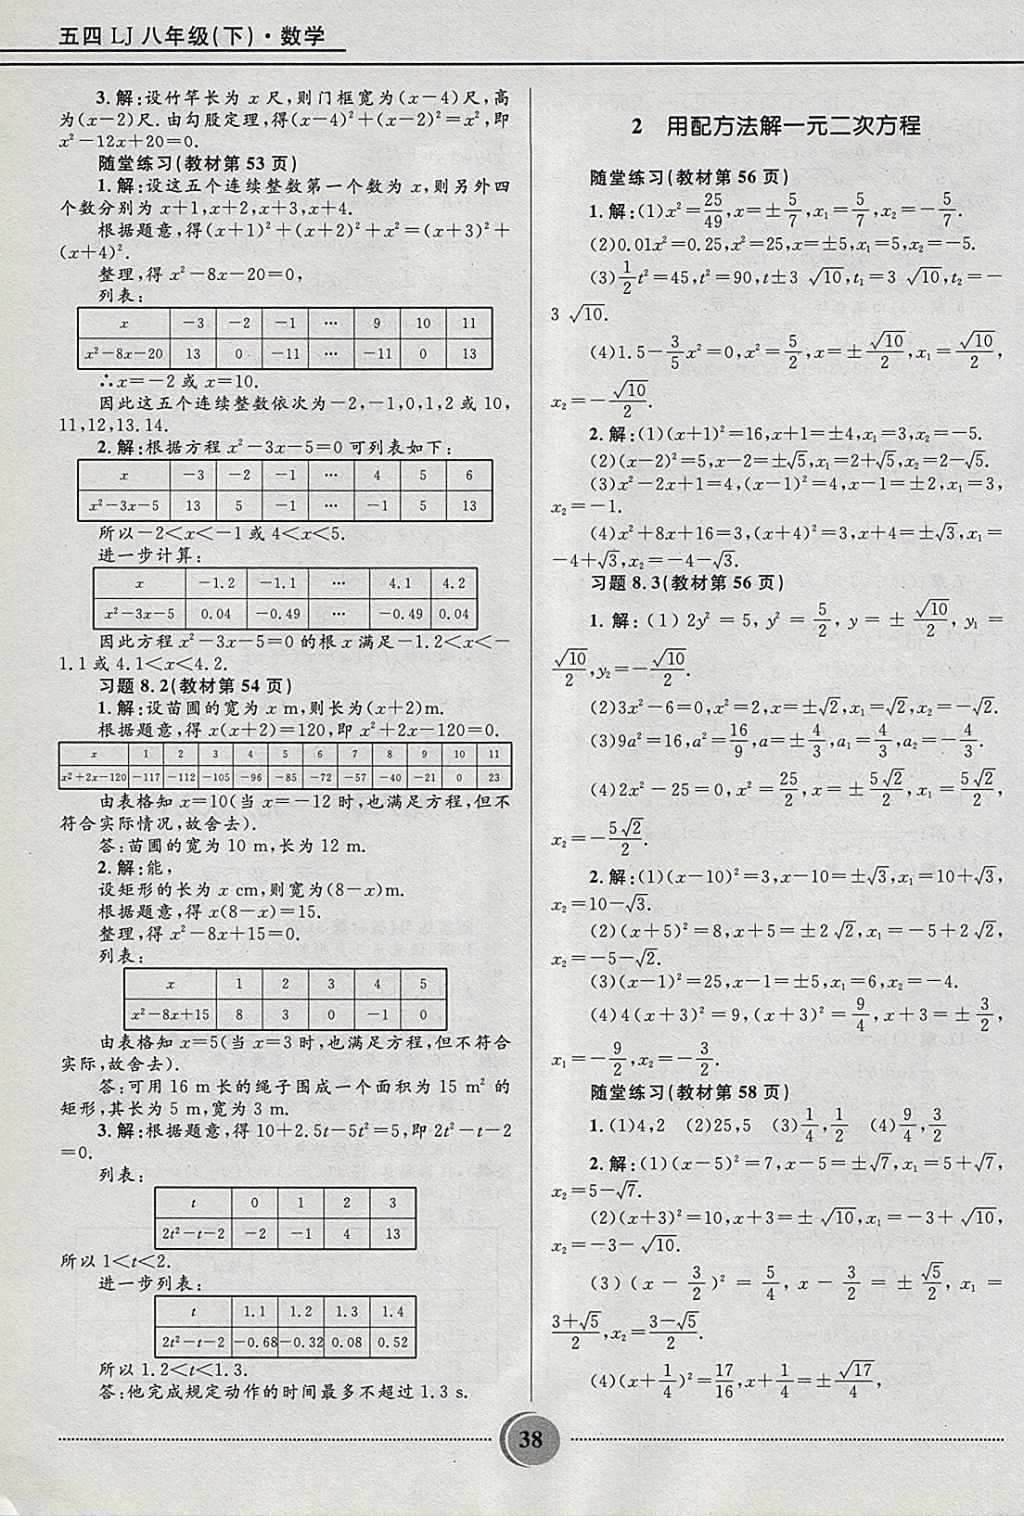 五四 LJ 八年级(下)·数学
3.解:设竹竿长为 x 尺,则门框宽为(x－4)尺,高
为(x－2)尺.由勾股定理,得(x－4)²＋(x－2)²＝x²,即
x²－12x＋20＝0.
随堂练习(教材第 53 页)
1.解:设这五个连续整数第一个数为 x,则另外四
个数分别为 x＋1,x＋2,x＋3,x＋4.
根据题意,得(x＋1)²＋(x＋2)²＋x²＝(x＋3)²＋
(x＋4)².
整理,得 x²－8x－20＝0,
列表:
x －3 －2 －1 … 9 10 11
x²－8x－20 13 0 －11 … －11 0 13
∴x＝－2 或 x＝10.
因此这五个连续整数依次为－2,－1,0,1,2 或 10,
11,12,13.14.
2.解:根据方程 x²－3x－5＝0 可列表如下:
x －3 －2 －1 … 4 5 6
x²－3x－5 13 5 －1 … －1 5 13
所以－2＜x＜－1 或 4＜x＜5.
进一步计算:
x －1.2 －1.1 … 4.1 4.2
x²－3x－5 0.04 －0.49 … －0.49 0.04
因此方程 x²－3x－5＝0 的根 x 满足－1.2＜x＜－
1.1 或 4.1＜x＜4.2.
习题 8.2(教材第 54 页)
1.解:设苗圃的宽为 x m,则长为(x＋2)m.
根据题意,得 x(x＋2)＝120,即 x²＋2x－120＝0.
x 1 2 3 4 5 6 7 8 9 10 11
x²＋2x－120 －117 －112 －105 －96 －85 －72 －57 －40 －21 0 23
由表格知 x＝10(当 x＝－12 时,也满足方程,但不
符合实际情况,故舍去).
答:苗圃的宽为 10 m,长为 12 m.
2.解:能,
设矩形的长为 x cm,则宽为(8－x)m.
根据题意,得 x(8－x)＝15.
整理,得 x²－8x＋15＝0.
列表:
x 1 2 3 4 5
x²－8x＋15 8 3 0 －1 0
由表格知 x＝5(当 x＝3 时,也满足方程,但不符合
实际,故舍去).
答:可用 16 m 长的绳子围成一个面积为 15 m² 的
矩形,其长为 5 m,宽为 3 m.
3.解:根据题意,得 10＋2.5t－5t²＝5,即 2t²－t－2
＝0.
列表:
t 0 1 2 3
2t²－t－2 －2 －1 4 13
所以 1＜t＜2.
进一步列表:
t 1.1 1.2 1.3 1.4
2t²－t－2 －0.68 －0.32 0.08 0.52
所以 1.2＜t＜1.3.
答:他完成规定动作的时间最多不超过 1.3 s.
2 用配方法解一元二次方程
随堂练习(教材第 56 页)
1.解:(1)x²＝25/49,x＝±5/7,x₁＝5/7,x₂＝－5/7.
(2)0.01x²＝0.25,x²＝25,x＝±5,x₁＝5,x₂＝－5.
(3)1/2t²＝45,t²＝90,t±3 √10,t₁＝3 √10,t₂＝－
3 √10.
(4)1.5－3/5x²＝0,x²＝5/2,x＝±√10/2,x₁＝√10/2,
x₂＝－√10/2.
2.解:(1)(x＋1)²＝16,x＋1＝±4,x₁＝3,x₂＝－5.
(2)(x－2)²＝5,x－2＝±√5,x₁＝2＋√5,x₂＝2－√5.
(3)x²－2x＋1＝4,(x－1)²＝4,x－1＝±2,x₁＝3,
x₂＝－1.
(4)x²＋8x＋16＝3,(x＋4)²＝3,x＋4＝±√3,x₁＝
－4＋√3,x₂＝－4－√3.
习题 8.3(教材第 56 页)
1.解:(1)2y²＝5,y²＝5/2,y＝±√10/2,y₁＝
√10/2,y₂＝－√10/2.
(2)3x²－6＝0,x²＝2,x＝±√2,x₁＝√2,x₂＝－√2.
(3)9a²＝16,a²＝16/9,a＝±4/3,a₁＝4/3,a₂＝－4/3.
(4)2x²－25＝0,x²＝25/2,x＝±5√2/2,x₁＝5√2/2,
x₂＝－5√2/2.
2.解:(1)(x－10)²＝3,x－10＝±√3,x₁＝10＋√3,
x₂＝10－√3.
(2)(x＋5)²＝8,x＋5＝±2 √2,x₁＝－5＋2 √2,
x₂＝－5－√2.
(3)(x－1)²＝25,x－1＝±5,x₁＝6,x₂＝－4.
(4)4(x＋3)²＝9,(x＋3)²＝9/4,x＋3＝±3/2,
x₁＝－9/2,x₂＝－3/2.
随堂练习(教材第 58 页)
1.(1)4,2 (2)25,5 (3)1/4,1/2 (4)9/4,3/2
2.解:(1)(x－5)²＝7,x－5＝±√7,x₁＝5＋√7,
x₂＝5－√7.
(2)(x＋3)²＝10,x＋3＝± √10,x₁＝－3＋ √10,
x₂＝－3－ √10.
(3)(x－3/2)²＝5/4,x－3/2＝±√5/2,x₁＝
3＋√5/2,x₂＝3－√5/2.
(4)(x＋1/4)²＝17/16,x＋1/4＝±√17/4,
38